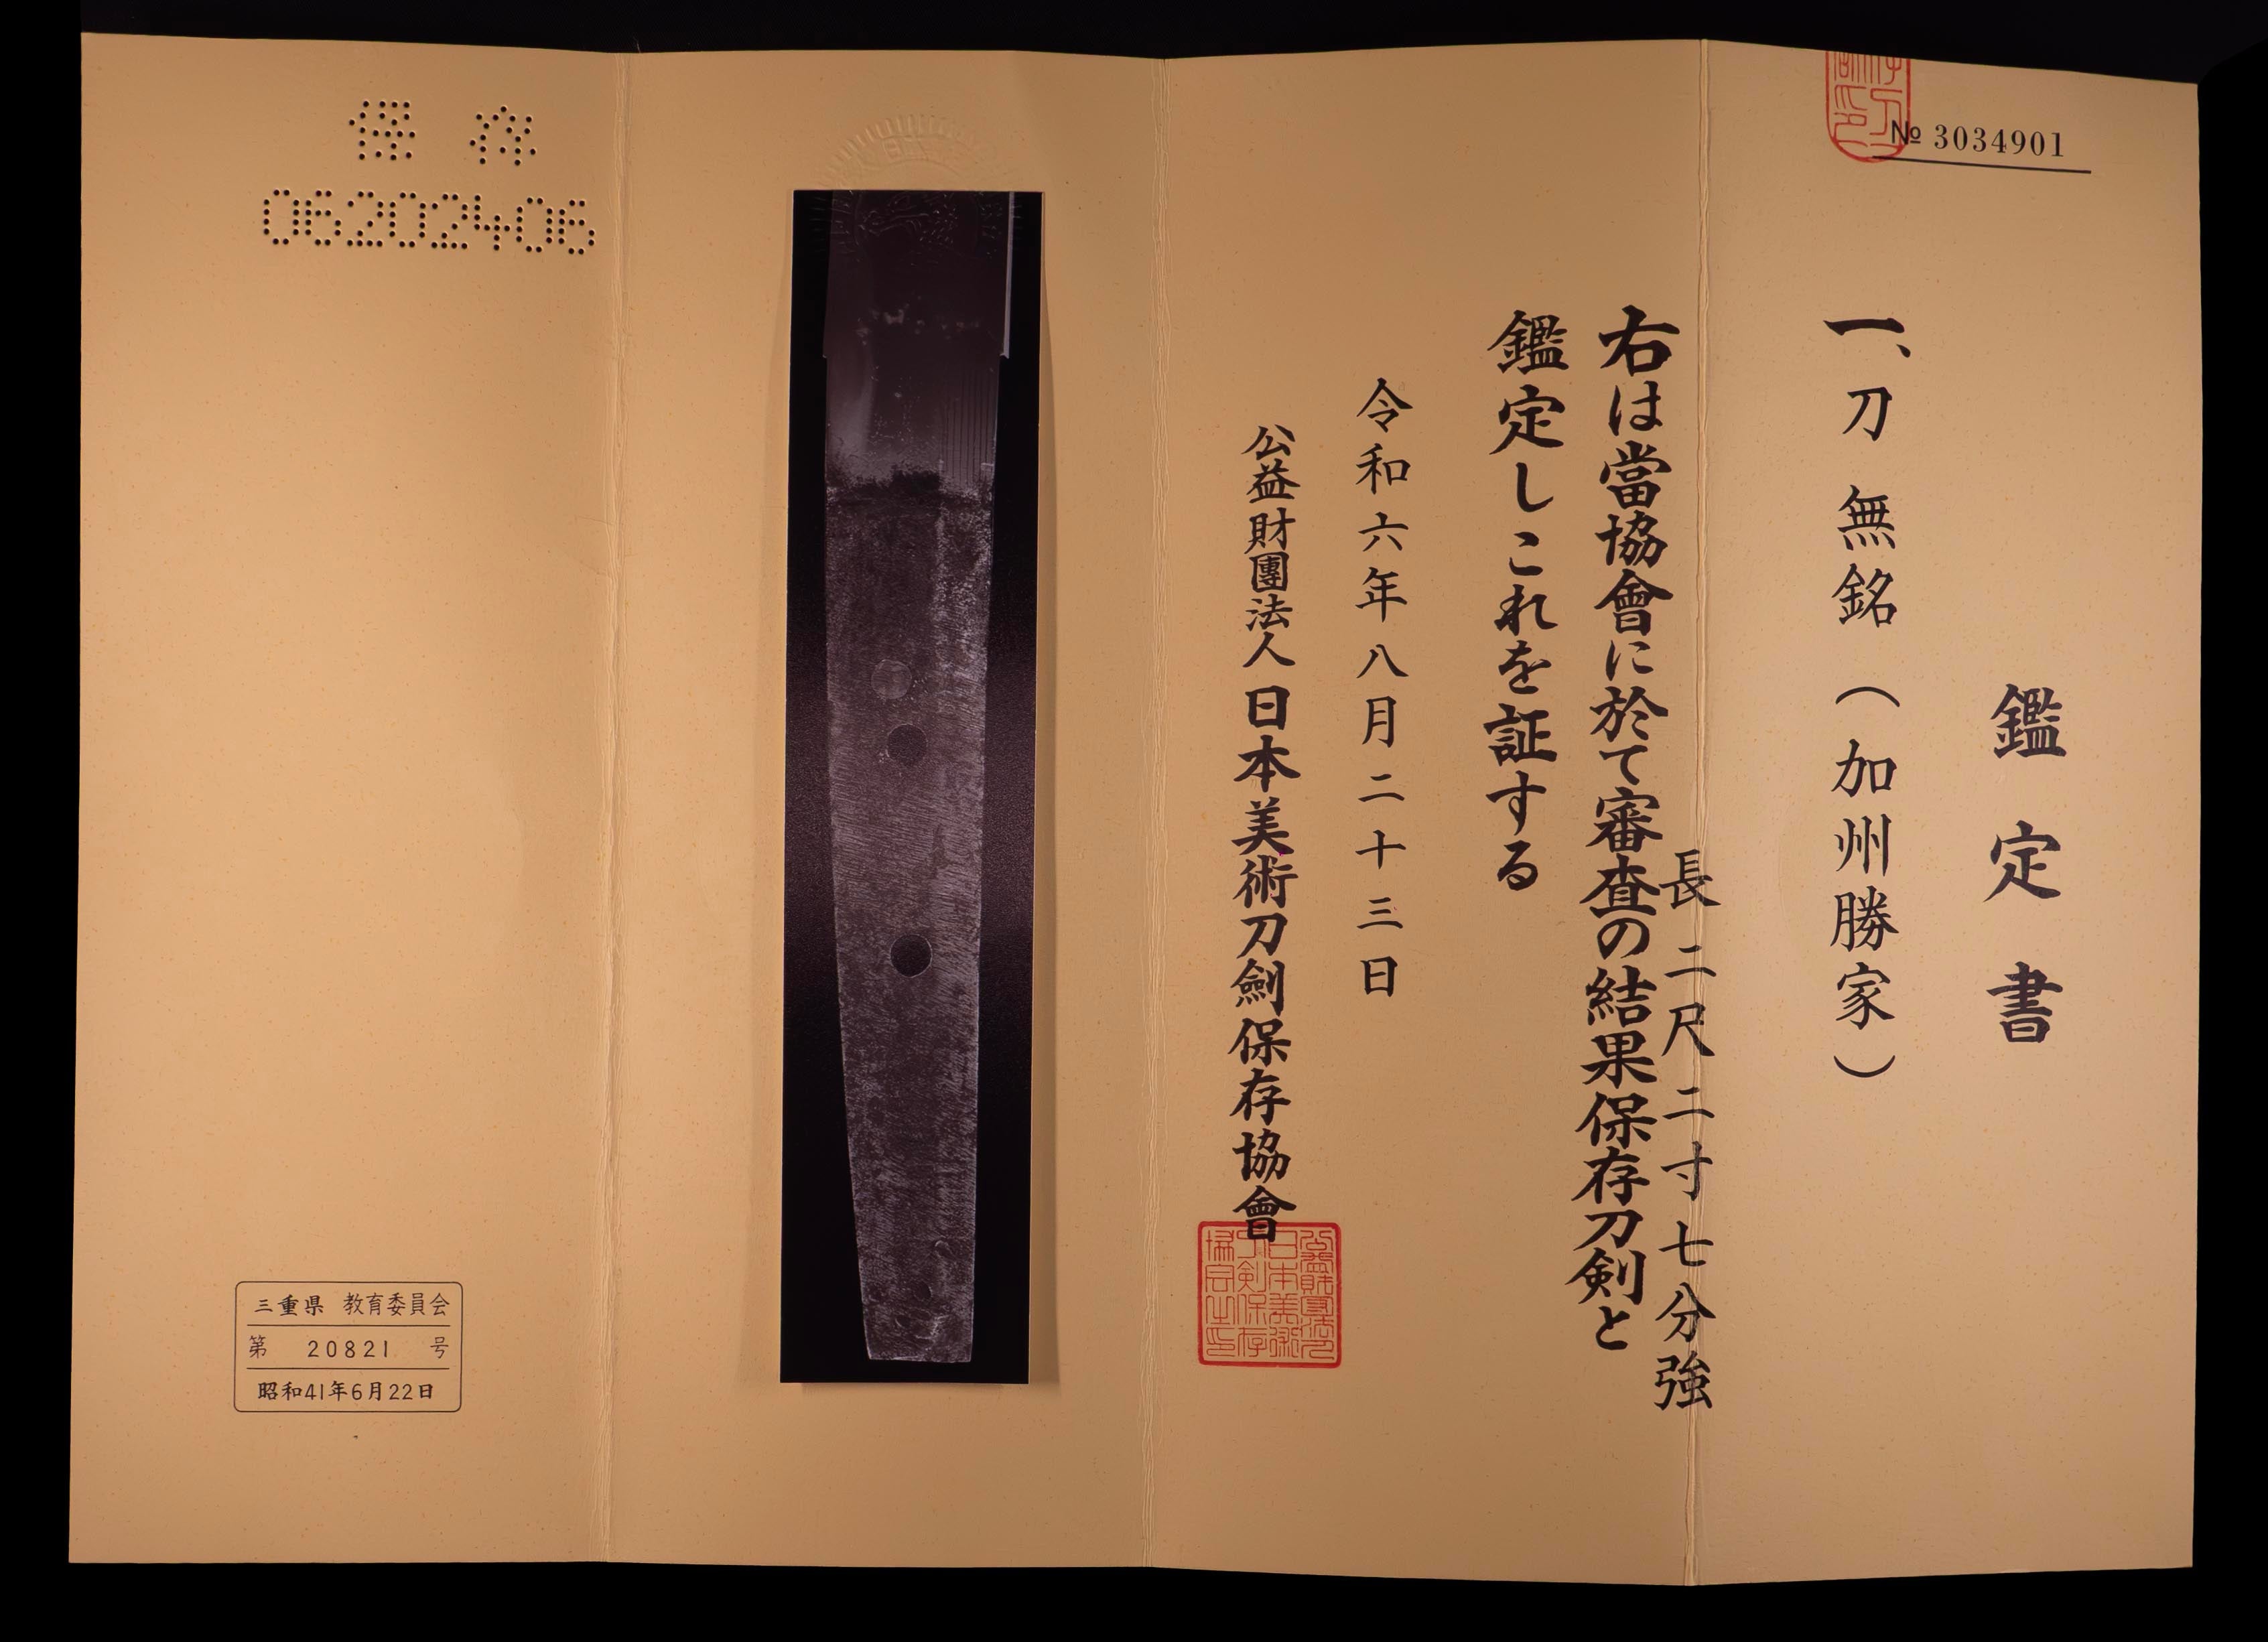 № 3034901
鑑定書
一、刀 無銘（加州勝家）
長二尺二寸七分強
右は當協會に於て審査の結果保存刀剣と
鑑定しこれを証する
令和六年八月二十三日
公益財團法人日本美術刀劍保存協會
保存
06202406
三重県 教育委員会
第 20821 号
昭和41年6月22日